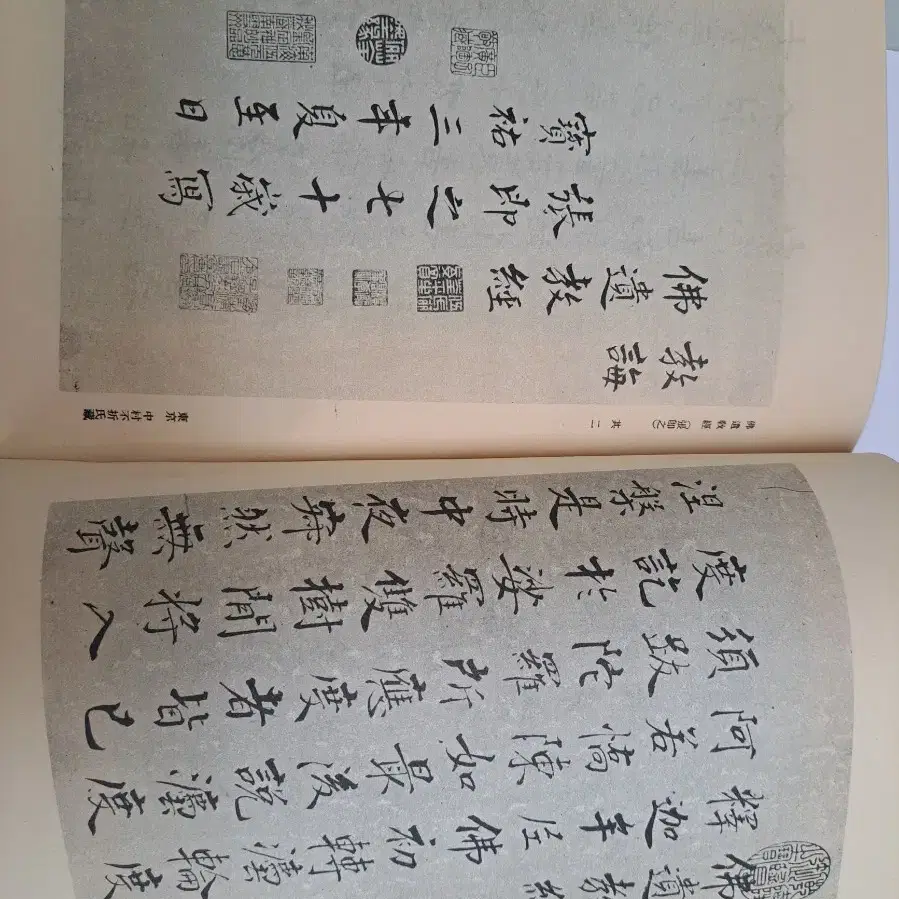 佛遺教經
釋迦牟尼佛初轉灋輪度
阿若憍陳如最後說灋度
須跋陀羅所應度者皆已
度訖於娑羅雙樹間將入
涅槃是時中夜寂然無聲
佛遺教經(張即之) 其二
教誨
佛遺教經
張即之七十歲寫
寶祐三年夏至日
東京 中村不折氏藏